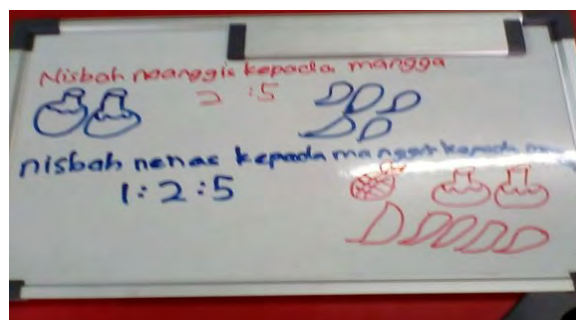 Nisbah manggis kepada mangga
2 : 5
nisbah nenas kepada manggis kepada
1 : 2 : 5